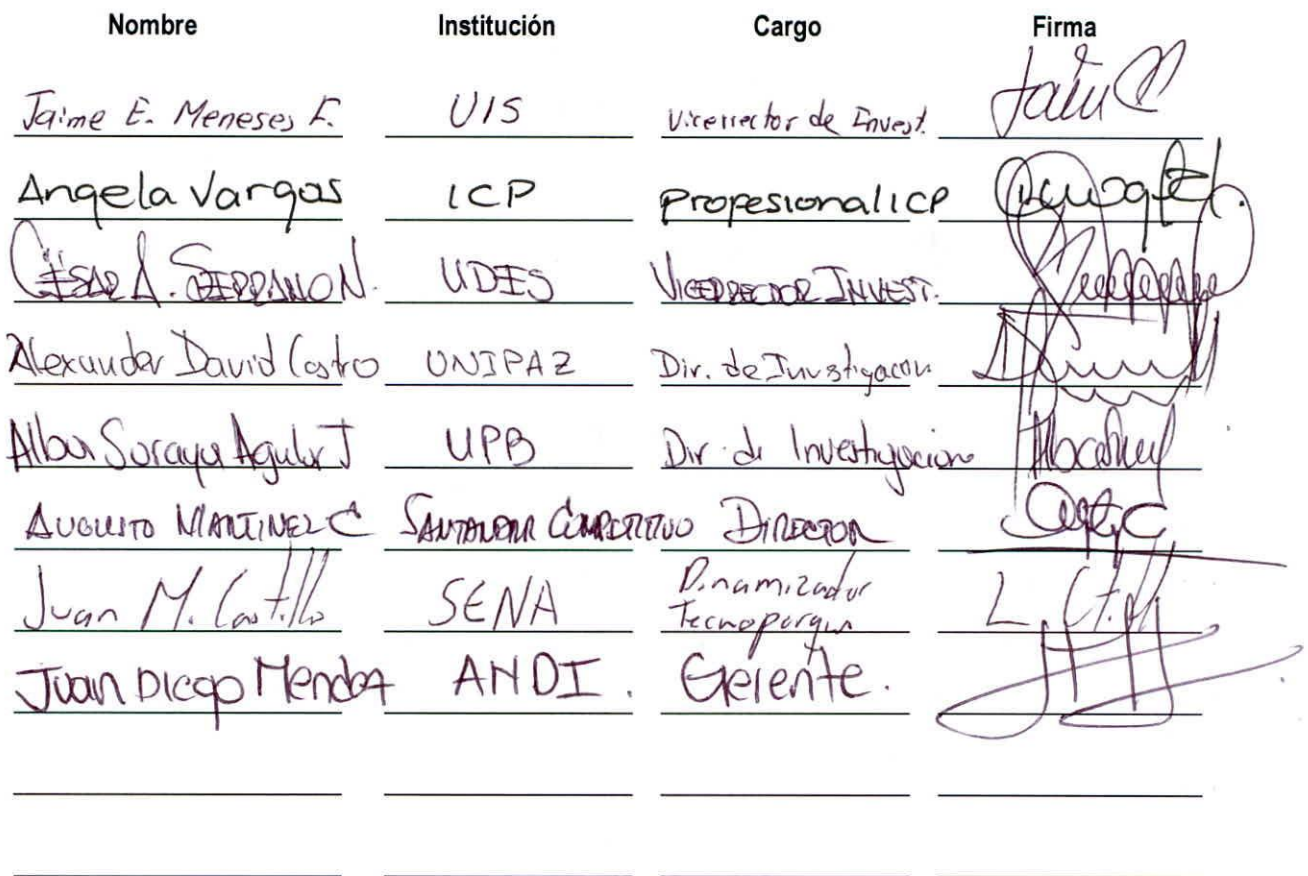 Nombre Institución Cargo Firma
Jaime E. Meneses F. UIS Vicerrector de Invest.
Angela Vargas ICP Propesional ICP
CÉSAR A. SERRANO N. UDES VICERRECTOR INVEST.
Alexander David Castro UNIPAZ Dir. de Investigacion
Alba Soraya Aguilar J UPB Dir. de Investigacion
AUGUSTO MARTINEZ C SANTANDER COMPETITIVO DIRECTOR
Juan M. Castillo SENA Dinamizador
Tecnoparque
Juan Diego Mendoza ANDI. Gerente.